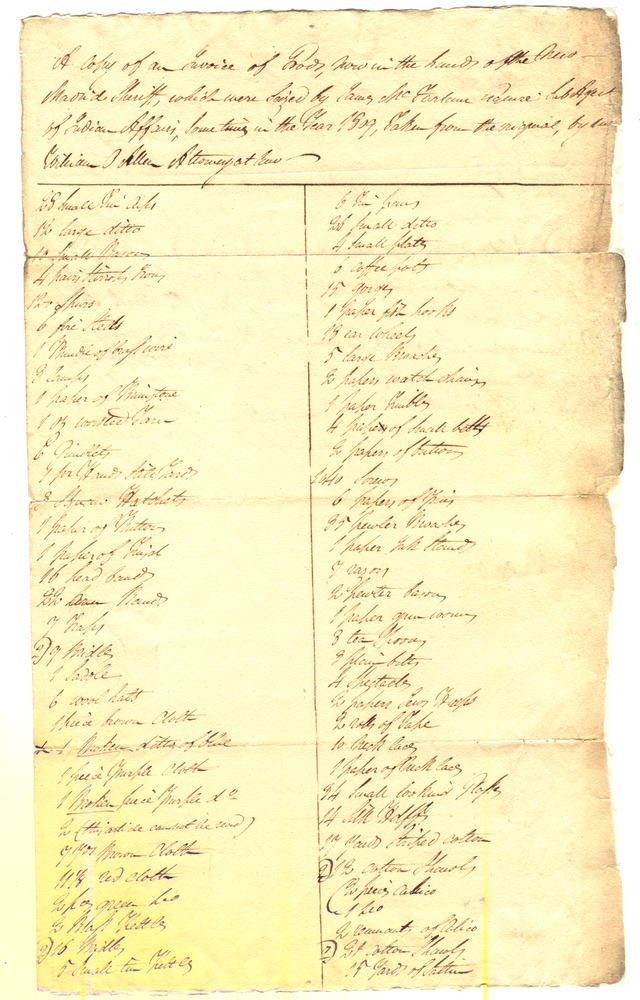 A Copy of an Invoice of Goods, now in the hands of the New
Madrid Sheriff, which were Seized by James McFarlane Sub Agent
of Indian Affairs, Sometime in the Year 1807, Taken from the original, by me
William Allen Attorney at Law
28 Small Tin
12 large ditto
Small Basons
4 pairs Stirrup Irons
12 Spurs
6 fire Steels
1 Bundle of brass wire
3 lamps
1 paper of Brimstone
1 oz worsted Yarn
6 Gimblets
Hatchets
1 paper of
1 paper of
16 head bands
22 Bands
7
2) 9 Bridles
1 Saddle
6 wool hatts
1 piece brown Cloth
1 Broken ditto of blue
1 piece Purple Cloth
1 Broken piece Purple do
2 (this article cannot be read)
Brown Cloth
red cloth
green do
2 Brass Kettles
2) 16 Bridles
5 Small tin Kettles
6 Tin pans
26 Small ditto
4 Small plates
6 coffee pots
15
1 paper fish hooks
13 ear wheels
5 large Broaches
2 papers watch chains
1 paper Thimbles
4 papers of Small bells
2 papers of buttons
Screws
6 papers of Pins
35 pewter Broaches
1 paper Ink Stands
7 razors
2 pewter Basons
1 paper gun worms
8 tea Spoons
3 plain bitts
4 Spectacles
2 papers Jews Harps
2 rolls of Tape
10 Neck laces
1 paper of Neck laces
34 Small looking Glasses
14 Silk Hdkfs
17 Yards Striped cotton
2) 12 cotton Shawls
(2 pieces Calico
1 do
2 remnants of Calico
2) 21 Cotton Shawls
15 Yards of